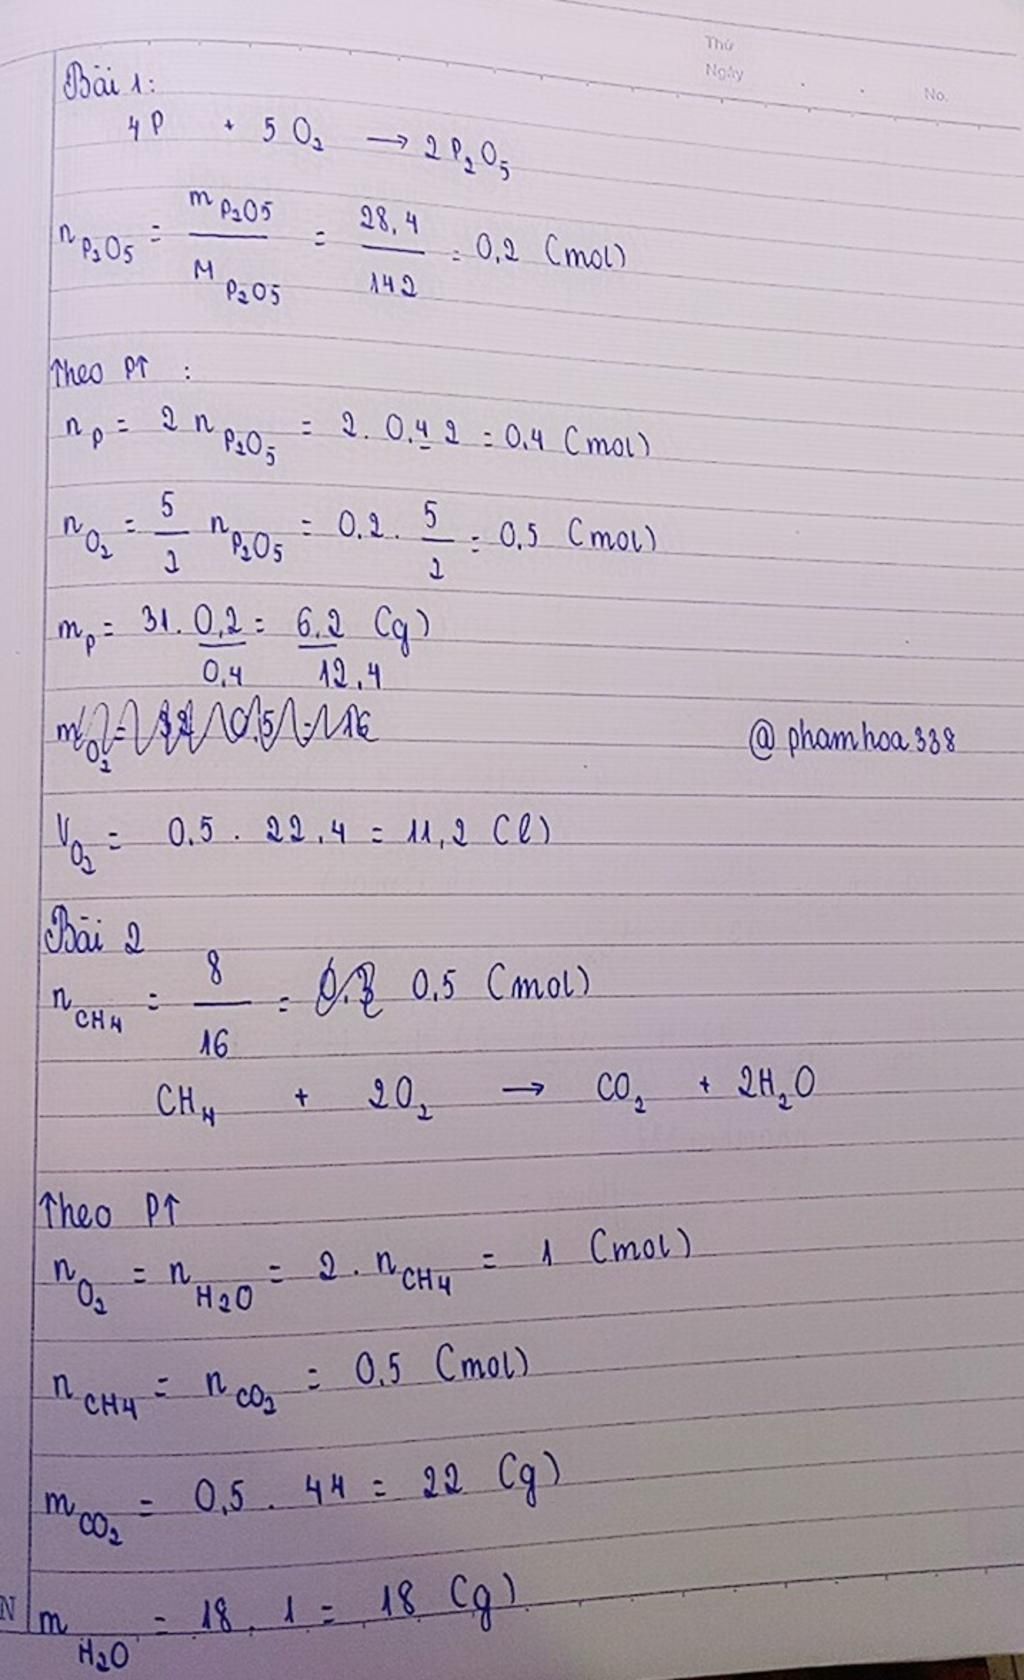 Thứ
Ngày
No.
Bài 1:
4P + 5O₂ → 2P₂O₅
n P₂O5 = m P₂O5 / M P₂O5 = 28,4 / 142 = 0,2 (mol)
Theo PT :
n P = 2 n P₂O5 = 2. 0,4 2 = 0,4 (mol)
n O₂ = 5/2 n P₂O5 = 0,2. 5/2 = 0,5 (mol)
m P = 31. 0,2 = 6,2 (g)
0,4 12,4
@phamhoa338
V O₂ = 0,5 . 22,4 = 11,2 (l)
Bài 2
n CH4 = 8/16 = 0,5 (mol)
CH₄ + 2O₂ → CO₂ + 2H₂O
Theo PT
n O₂ = n H2O = 2. n CH4 = 1 (mol)
n CH4 = n CO₂ = 0,5 (mol)
m CO₂ = 0,5 . 44 = 22 (g)
N
m H2O = 18 . 1 = 18 (g)